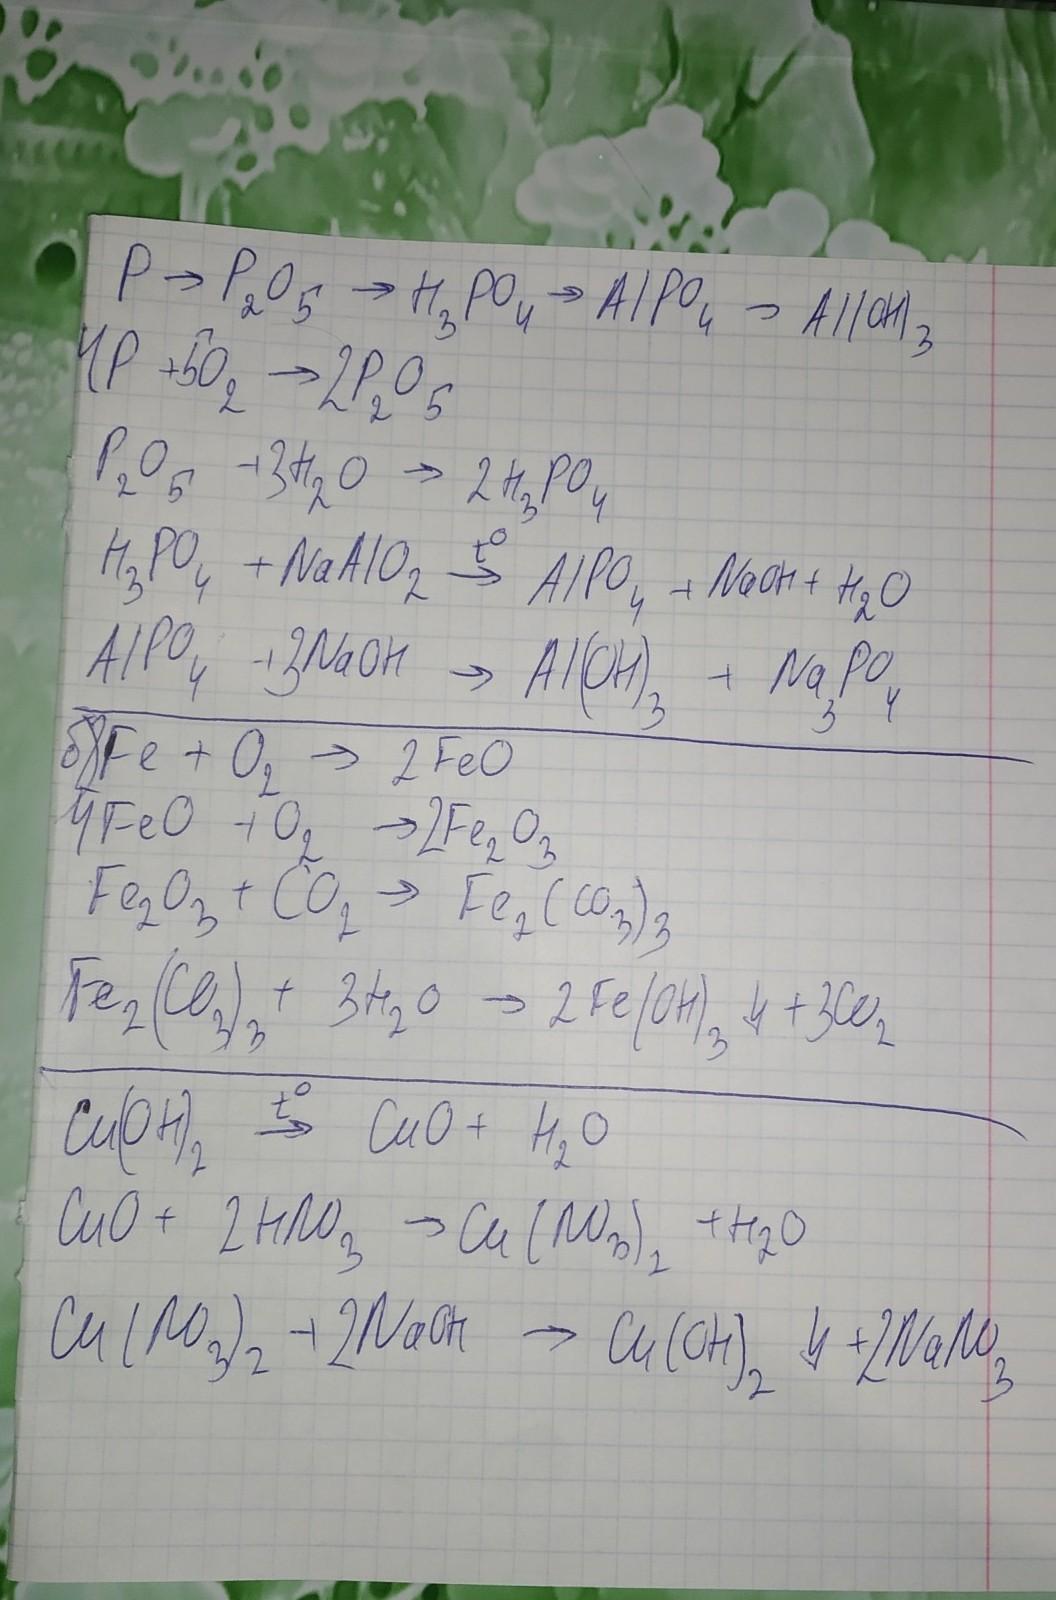 P → P₂O₅ → H₃PO₄ → AlPO₄ → Al(OH)₃
4P + 5O₂ → 2P₂O₅
P₂O₅ + 3H₂O → 2H₃PO₄
H₃PO₄ + NaAlO₂ t° → AlPO₄ + NaOH + H₂O
AlPO₄ + 3NaOH → Al(OH)₃ + Na₃PO₄
б) Fe + O₂ → 2FeO
4FeO + O₂ → 2Fe₂O₃
Fe₂O₃ + CO₂ → Fe₂(CO₃)₃
Fe₂(CO₃)₃ + 3H₂O → 2Fe(OH)₃ ↓ + 3CO₂
Cu(OH)₂ t° → CuO + H₂O
CuO + 2HNO₃ → Cu(NO₃)₂ + H₂O
Cu(NO₃)₂ + 2NaOH → Cu(OH)₂ ↓ + 2NaNO₃